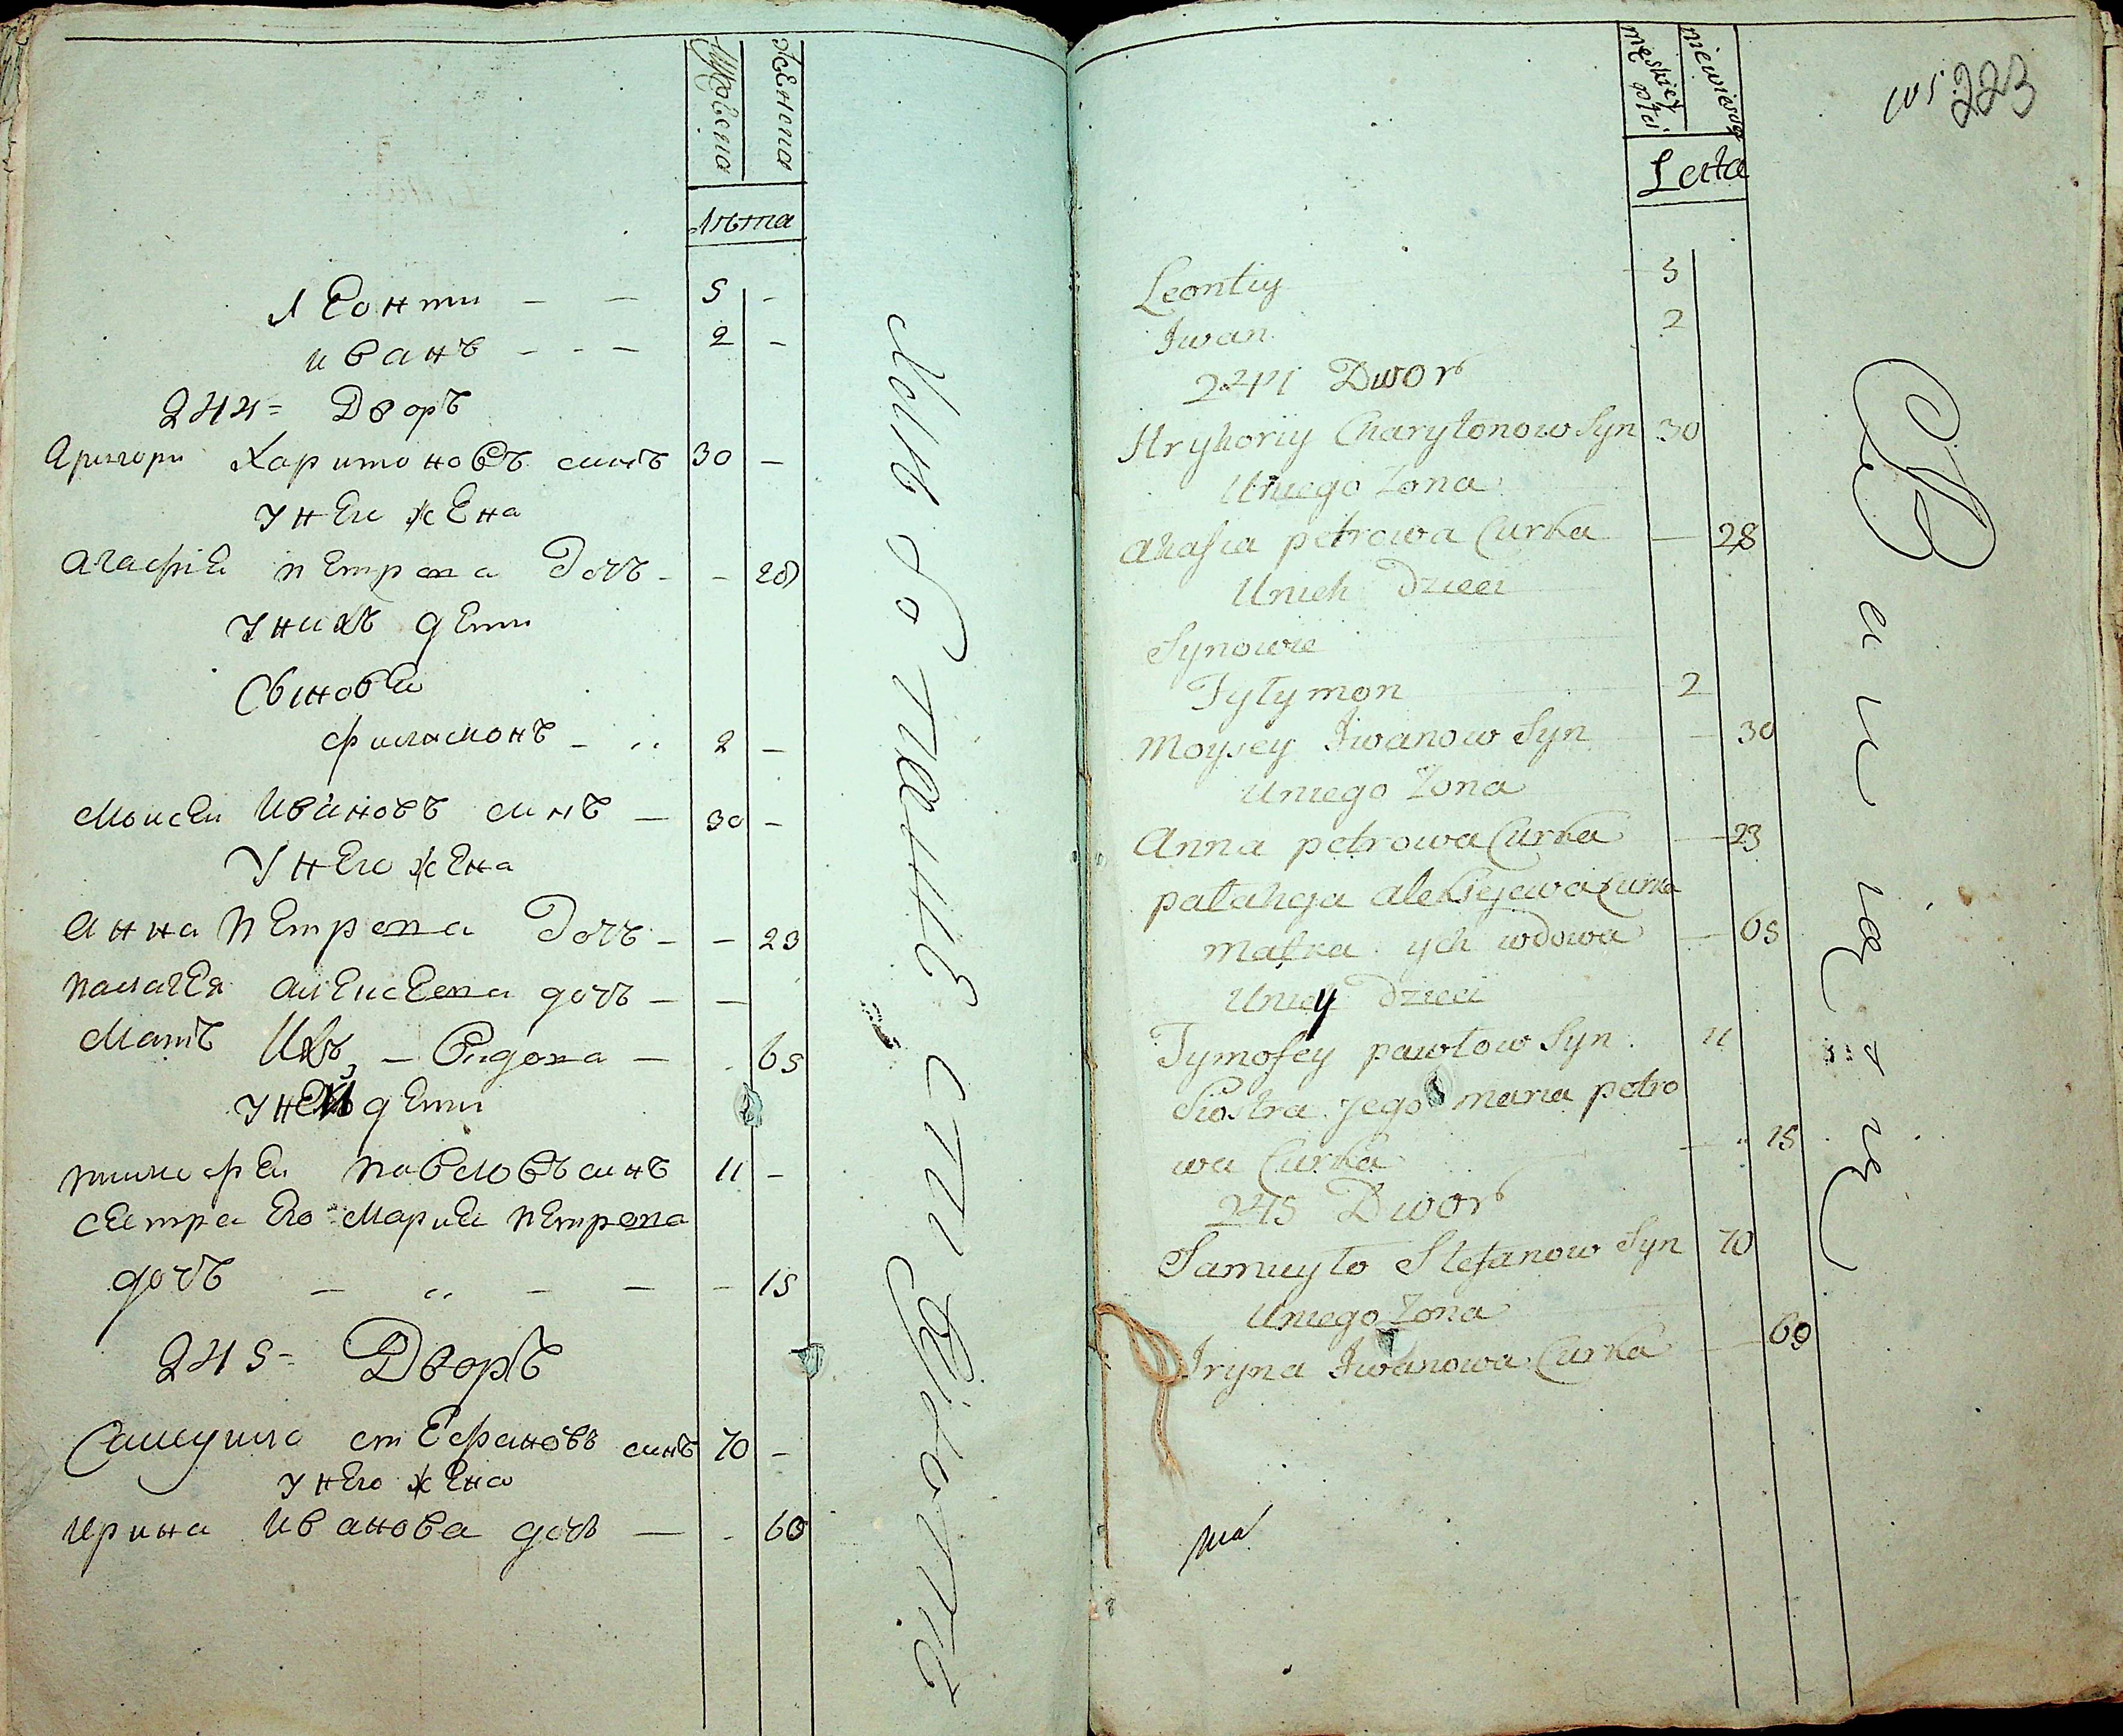 Мужеска
Женска
Лѣта
Леонти – – 5 –
иванъ – – – 2 –
244= Дворъ
Григори Харитоновъ синъ 30 –
У него жена
Агафиа петрова Дочъ – – 28
У нихъ дети
Сыновеи
филимонъ – 2 –
Моисеи Ивановъ синъ – 30 –
У него жена
Анна Петрова Дочъ – – 23
палагея алексеева дочъ – –
Матъ Ихъ – вдова – 65
У ней дети
тимофеи Павловъ синъ 11 –
сестра его Мариа Петрова
дочъ – – – – 15
245= Дворъ
Самуило стефановъ синъ 70 –
У него жена
Ирина Иванова дочъ – – 60
męskiey płci
niewiescey
Lata
223
Leontiy 5
Iwan 2
244 Dwor
Hryhoriy Charytonow Syn 30
Uniego Zona
Ahafia petrowa Curka – 28
Unich Dzieci
Synowie
Fylymon 2
Moysey Iwanow Syn – 30
Uniego Zona
Anna petrowa Curka – 23
palaheja alexiejewa Curka
Matka ych wdowa – 65
Uniey Dzieci
Tymofey pawłow Syn 11
Siostra Jego maria petro
wa Curka – 15
245 Dwor
Samuyło Stefanow Syn 70
Uniego Zona
Iryna Iwanowa Curka – 60